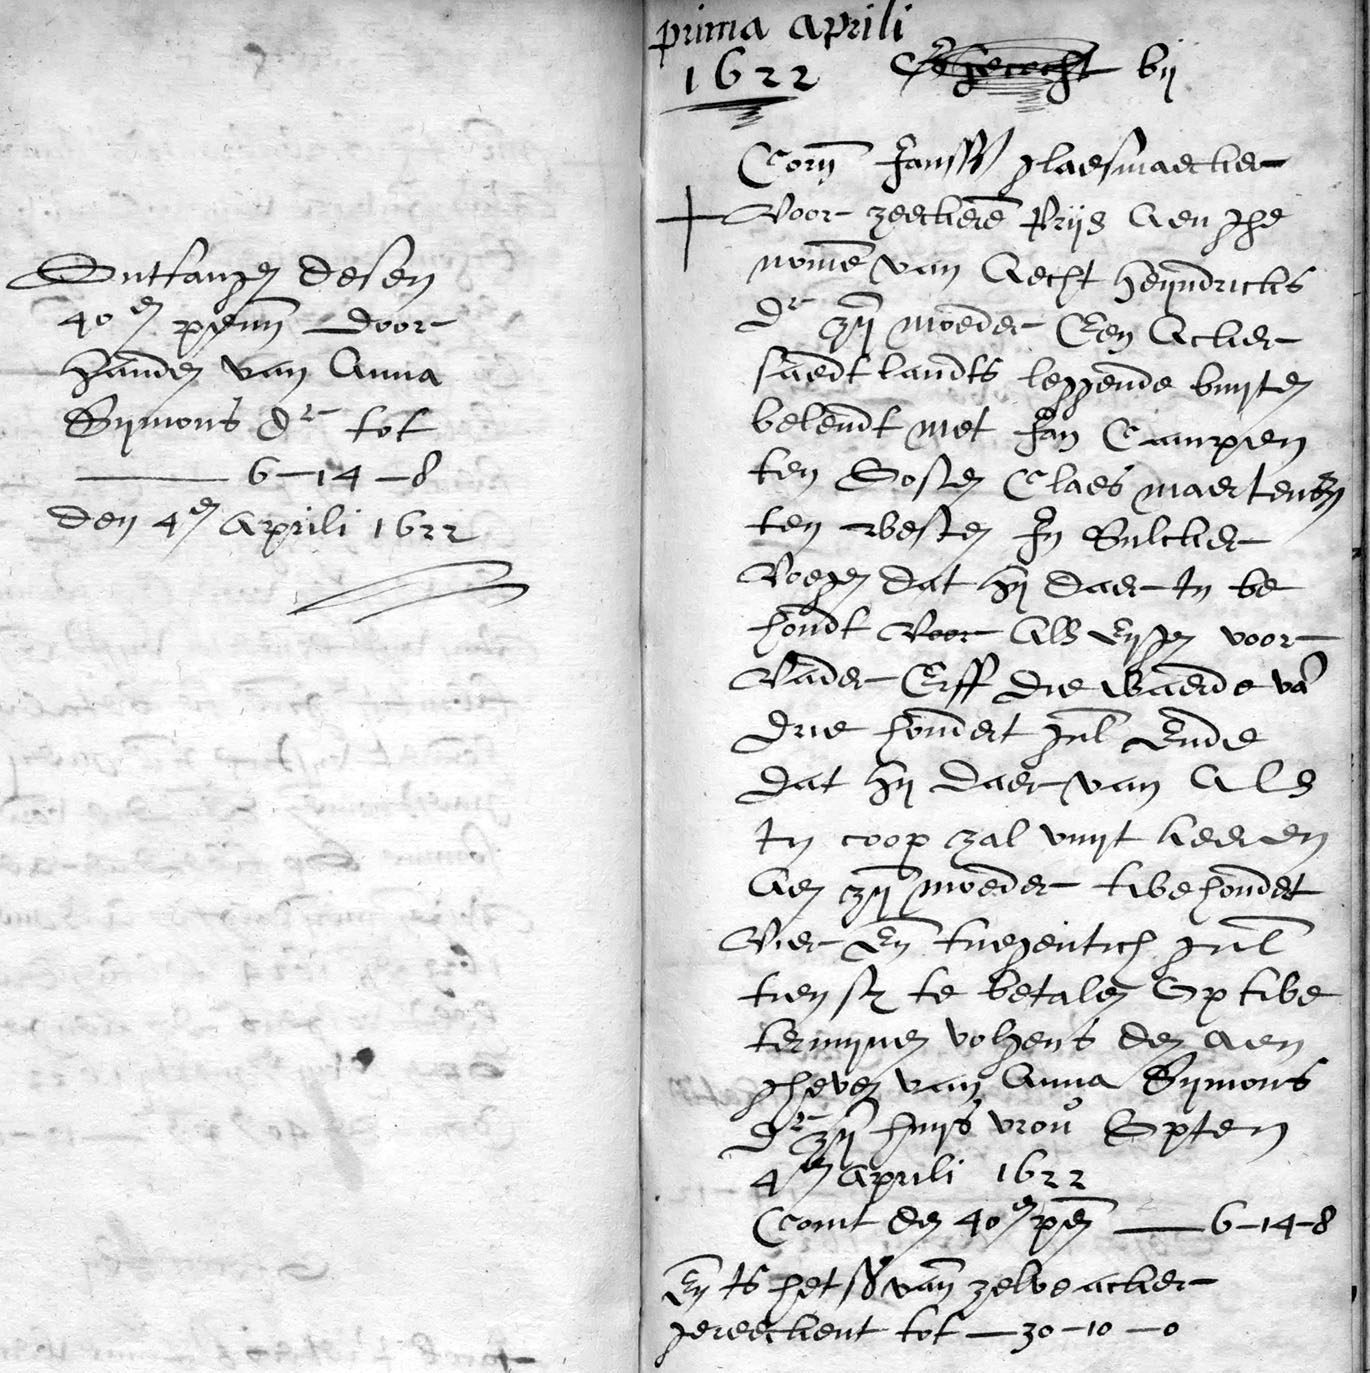 Ontfangen desen
40en penn door
handen van Anna
Sijmons dr tot
6-14-8
den 4en Aprili 1622
prima aprili
1622 bij
Corn Janss glaesmaecker
Voor zeeckere Prijs Aen ghe
nomē van Aecht heyndricks
dr zijn moeder Een Acker
saedt landts leggende buyten
belendt met Jan Campen
ten Oosten Claes maertensen
ten westen In Sulcker
Voegen dat hij daer In be
houdt Voor Als Eijgen voor
Vader Erff die waerde vā
drie hondert gul Ende
dat hij daer van Als
In coop zal uuyt keeren
Aen zijn moeder twehondert
Vier En tnegentich gul
tien st te betalen Op twe
termijnen volgens den Aen
gheven van Anna Sijmons
dr zijn huijsvrou Opten
4en Aprili 1622
Comt den 40en pen 6-14-8
En is het van zelve acker
gereeckent tot 30-10-0